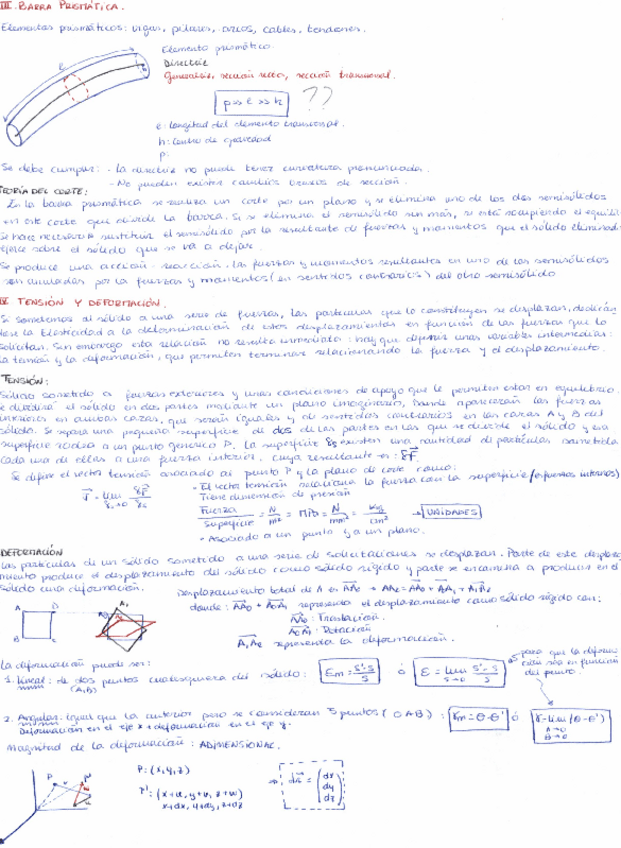 III. BARRA PRISMÁTICA.
Elementos prismáticos: vigas, pilares, arcos, cables, tendones.
Elemento prismático.
Directriz
Generatriz, sección recta, sección transversal.
ρ >> ℓ >> h ??
ℓ: longitud del elemento transversal.
h: centro de gravedad
ρ:
Se debe cumplir: - La directriz no puede tener curvatura pronunciada.
- No pueden existir cambios bruscos de sección.
TEORÍA DEL CORTE:
En la barra prismática se realiza un corte por un plano y se elimina uno de los dos semisólidos
en este corte que divide la barra. Si se elimina el semisólido sin más, se está rompiendo el equili
Se hace necesario sustituir el semisólido por la resultante de fuerzas y momentos que el sólido eliminado
ejerce sobre el sólido que se va a dejar.
Se produce una acción-reacción. Las fuerzas y momentos resultantes en uno de los semisólidos
son anuladas por la fuerzas y momentos (en sentidos contrarios) del otro semisólido
IV. TENSIÓN Y DEFORMACIÓN.
Si sometemos al sólido a una serie de fuerzas, las partículas que lo constituyen se desplazan,
la Elasticidad a la determinación de estos desplazamientos en función de las fuerzas que lo
solicitan. Sin embargo esta relación no resulta inmediata: hay que definir unas variables intermedias:
la tensión y la deformación, que permiten terminar relacionando la fuerza y el desplazamiento.
TENSIÓN:
Sólido sometido a fuerzas exteriores y unas condiciones de apoyo que le permiten estar en equilibrio.
Se dividirá el sólido en dos partes mediante un plano imaginario, donde aparecerán las fuerzas
interiores en ambas caras, que serán iguales y de sentidos contrarios en las caras A y B del
sólido. Se separa una pequeña superficie de dos de las partes en las que se divide el sólido y esa
superficie rodea a un punto genérico P. La superficie δs existen una cantidad de partículas sometida
cada una de ellas a una fuerza interior, cuya resultante es: δF
Se define el vector tensión asociado al punto P y la plano de corte como:
- El vector tensión relaciona la fuerza con la superficie (esfuerzos internos)
Tiene dimensión de presión
Fuerza / Superficie = N/m² = MPa = N/mm² = kg/cm² → UNIDADES
- Asociado a un punto y a un plano.
DEFORMACIÓN
Las partículas de un sólido sometido a una serie de solicitaciones se desplazan. Parte de este desplaza
miento produce el desplazamiento del sólido como sólido rígido y parte se encamina a producir en el
sólido una deformación.
Desplazamiento total de A
donde: representa el desplazamiento como sólido rígido con:
: Traslación.
: Rotación
representa la deformación.
La deformación puede ser:
1. Lineal: de dos puntos cualesquiera del sólido: Em = S'-S / S ó ε = lim s→0 S'-S / S
(A,B)
para que la deform
cada sea en función
del punto.
2. Angular: igual que la anterior pero se consideran 3 puntos (OAB): γm = θ-θ' ó γ = lim (θ-θ')
A→0
B→0
Deformación en el eje x + deformación en el eje y.
Magnitud de la deformación: ADIMENSIONAL.
P: (x,y,z)
P': (x+u, y+v, z+w)
x+dx, y+dy, z+dz